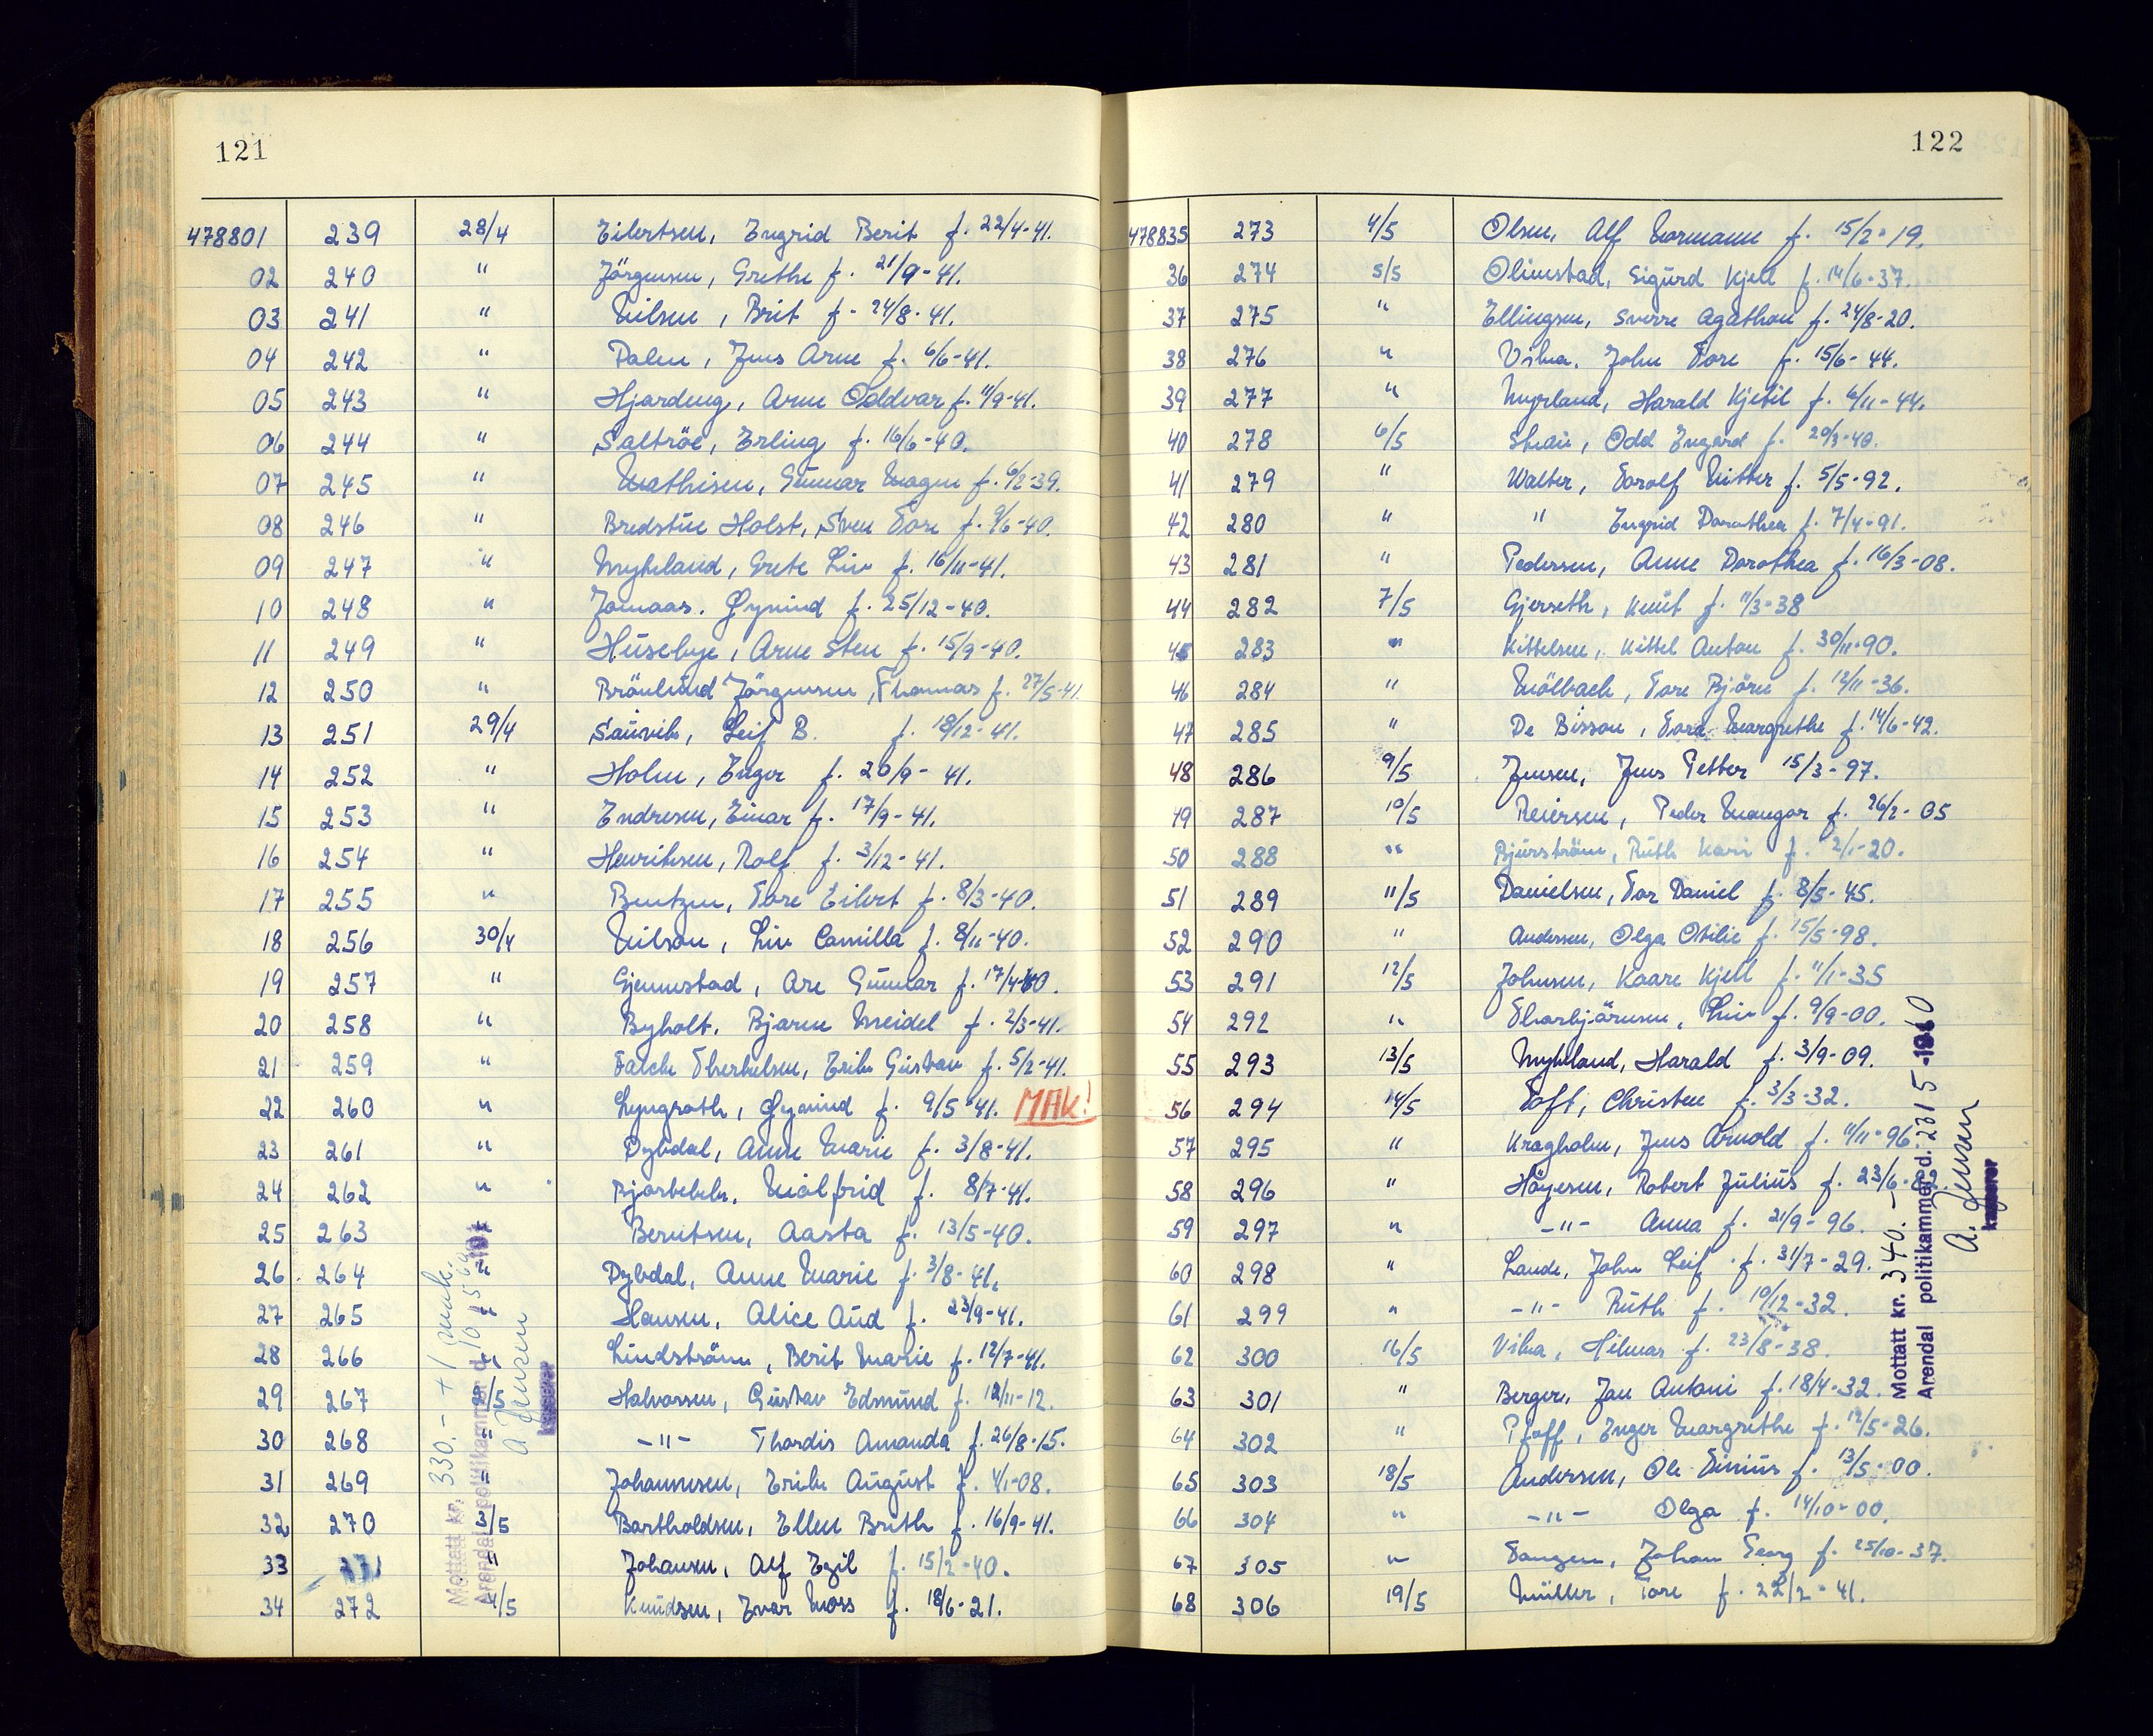 121
478801 239 28/4 Eilertsen, Ingrid Berit f. 22/4-41.
02 240 " Jörgensen, Grethe f. 21/9-41.
03 241 " Nilsen, Brit f. 24/8-41.
04 242 " Palm, Jens Arne f. 6/6-41.
05 243 " Hjardeng, Arne Oddvar f. 11/9-41.
06 244 " Saltröe, Erling f. 16/6-40.
07 245 " Mathisen, Gunnar Magne f. 6/2-39.
08 246 " Holst, Sven Tore f. 9/6-40.
09 247 " Myhrland, Grete Liv f. 16/11-41.
10 248 " Jomaas. Øyvind f. 25/12-40.
11 249 " Husebye, Arne Sten f. 15/9-40.
12 250 " Brönlund Jörgensen, Thomas f. 27/5-41.
13 251 29/4 Saurvik, Leif B. f. 18/12-41.
14 252 " Holm, Inger f. 20/9-41.
15 253 " Endresen, Einar f. 17/9-41.
16 254 " Henriksen, Rolf f. 3/12-41.
17 255 " Bentzen, Tore Eilert f. 8/3-40.
18 256 30/4 Nilson, Liv Camilla f. 8/11-40.
19 257 " Gjennestad, Are Gunnar f. 17/4-40.
20 258 " Byholt. Bjarne Meidel f. 2/3-41.
21 259 " Falck Therkelsen, Erik Gustav f. 5/2-41.
22 260 " Lyngroth, Øyvind f. 9/5-41. MAK!
23 261 " Dybdal, Anne Marie f. 3/8-41.
24 262 " Målfrid f. 8/7-41.
25 263 " Berntsen, Aasta f. 13/5-40.
26 264 " Dybdal, Anne Marie f. 3/8-41.
27 265 " Hansen, Alice Aud f. 23/9-41.
28 266 " Lindström, Berit Marie f. 12/7-41.
29 267 2/5 Halvorsen, Gustav Edmund f. 12/11-12.
30 268 " -"- Thordis Amanda f. 26/8-15.
31 269 " Johannesen, Erik August f. 4/1-08.
32 270 3/5 Bartholdsen, Ellen Brith f. 16/9-41.
33 271 " Johansen, Alf Egil f. 15/2-40.
34 272 4/5 Knudsen, Ivar Moss f. 18/6-21.
Mottatt kr. 330.- + 1 mak.
Arendal politikammer d. 10/5 60
A. Jensen
kasserer
122
478835 273 4/5 Olsen, Alf Normann f. 15/2-19.
36 274 5/5 Olimstad, Sigurd Kjell f. 14/6-37.
37 275 " Ellingsen, Sverre Agathon f. 24/8-20.
38 276 " Vilna. John Tore f. 15/6-44.
39 277 " Myrland, Harald Kjetil f. 6/11-44.
40 278 6/5 Odd Ingard f. 20/3-40.
41 279 " Walter, Torolf Nitter f. 5/5-92.
42 280 " " Ingrid Dorothea f. 7/4-91.
43 281 " Pedersen, Anne Dorothea f. 16/3-08.
44 282 7/5 Gjerseth, Knut f. 11/3-38
45 283 " Kittelsen, Kittel Anton f. 30/11-90.
46 284 " Mölbach, Tore Björn f. 12/11-36.
47 285 " De Bisson, Tora Margrethe f. 14/6-42.
48 286 9/5 Jensen, Jens Petter 15/3-97.
49 287 10/5 Reiersen, Peder Mangor f. 26/2-05
50 288 " Bjurström, Ruth Karin f. 2/1-20.
51 289 11/5 Danielsen, Tor Daniel f. 8/5-45.
52 290 " Andersen, Olga Otilie f. 15/5-98.
53 291 12/5 Johnsen, Kaare Kjell f. 11/1-35
54 292 " Thorbjörnsen, Liv f. 9/9-00.
55 293 13/5 Myhrland, Harald f. 3/9-09.
56 294 14/5 Toft, Christen f. 3/3-32.
57 295 " Kragholm, Jens Arnold f. 11/11-96.
58 296 " Höyesen, Robert Julius f. 23/6-
59 297 " -"- Anna f. 21/9-96.
60 298 " Lande, John Leif f. 31/7-29.
61 299 " -"- Ruth f. 10/12-32.
62 300 16/5 Vilna, Hilmar f. 23/8-38.
63 301 " Berger, Jan Antoni f. 18/4-32.
64 302 " Pfaff, Inger Margrethe f. 12/5-26.
65 303 18/5 Andersen, Ole Sinius f. 13/5-00.
66 304 " -"- Olga f. 14/10-00.
67 305 " Tangen, Johan Georg f. 25/10-37.
68 306 19/5 Müller, Tore f. 22/2-41.
Mottatt kr. 340.-
Arendal politikammer d. 20/5-1960
A. Jensen
kasserer